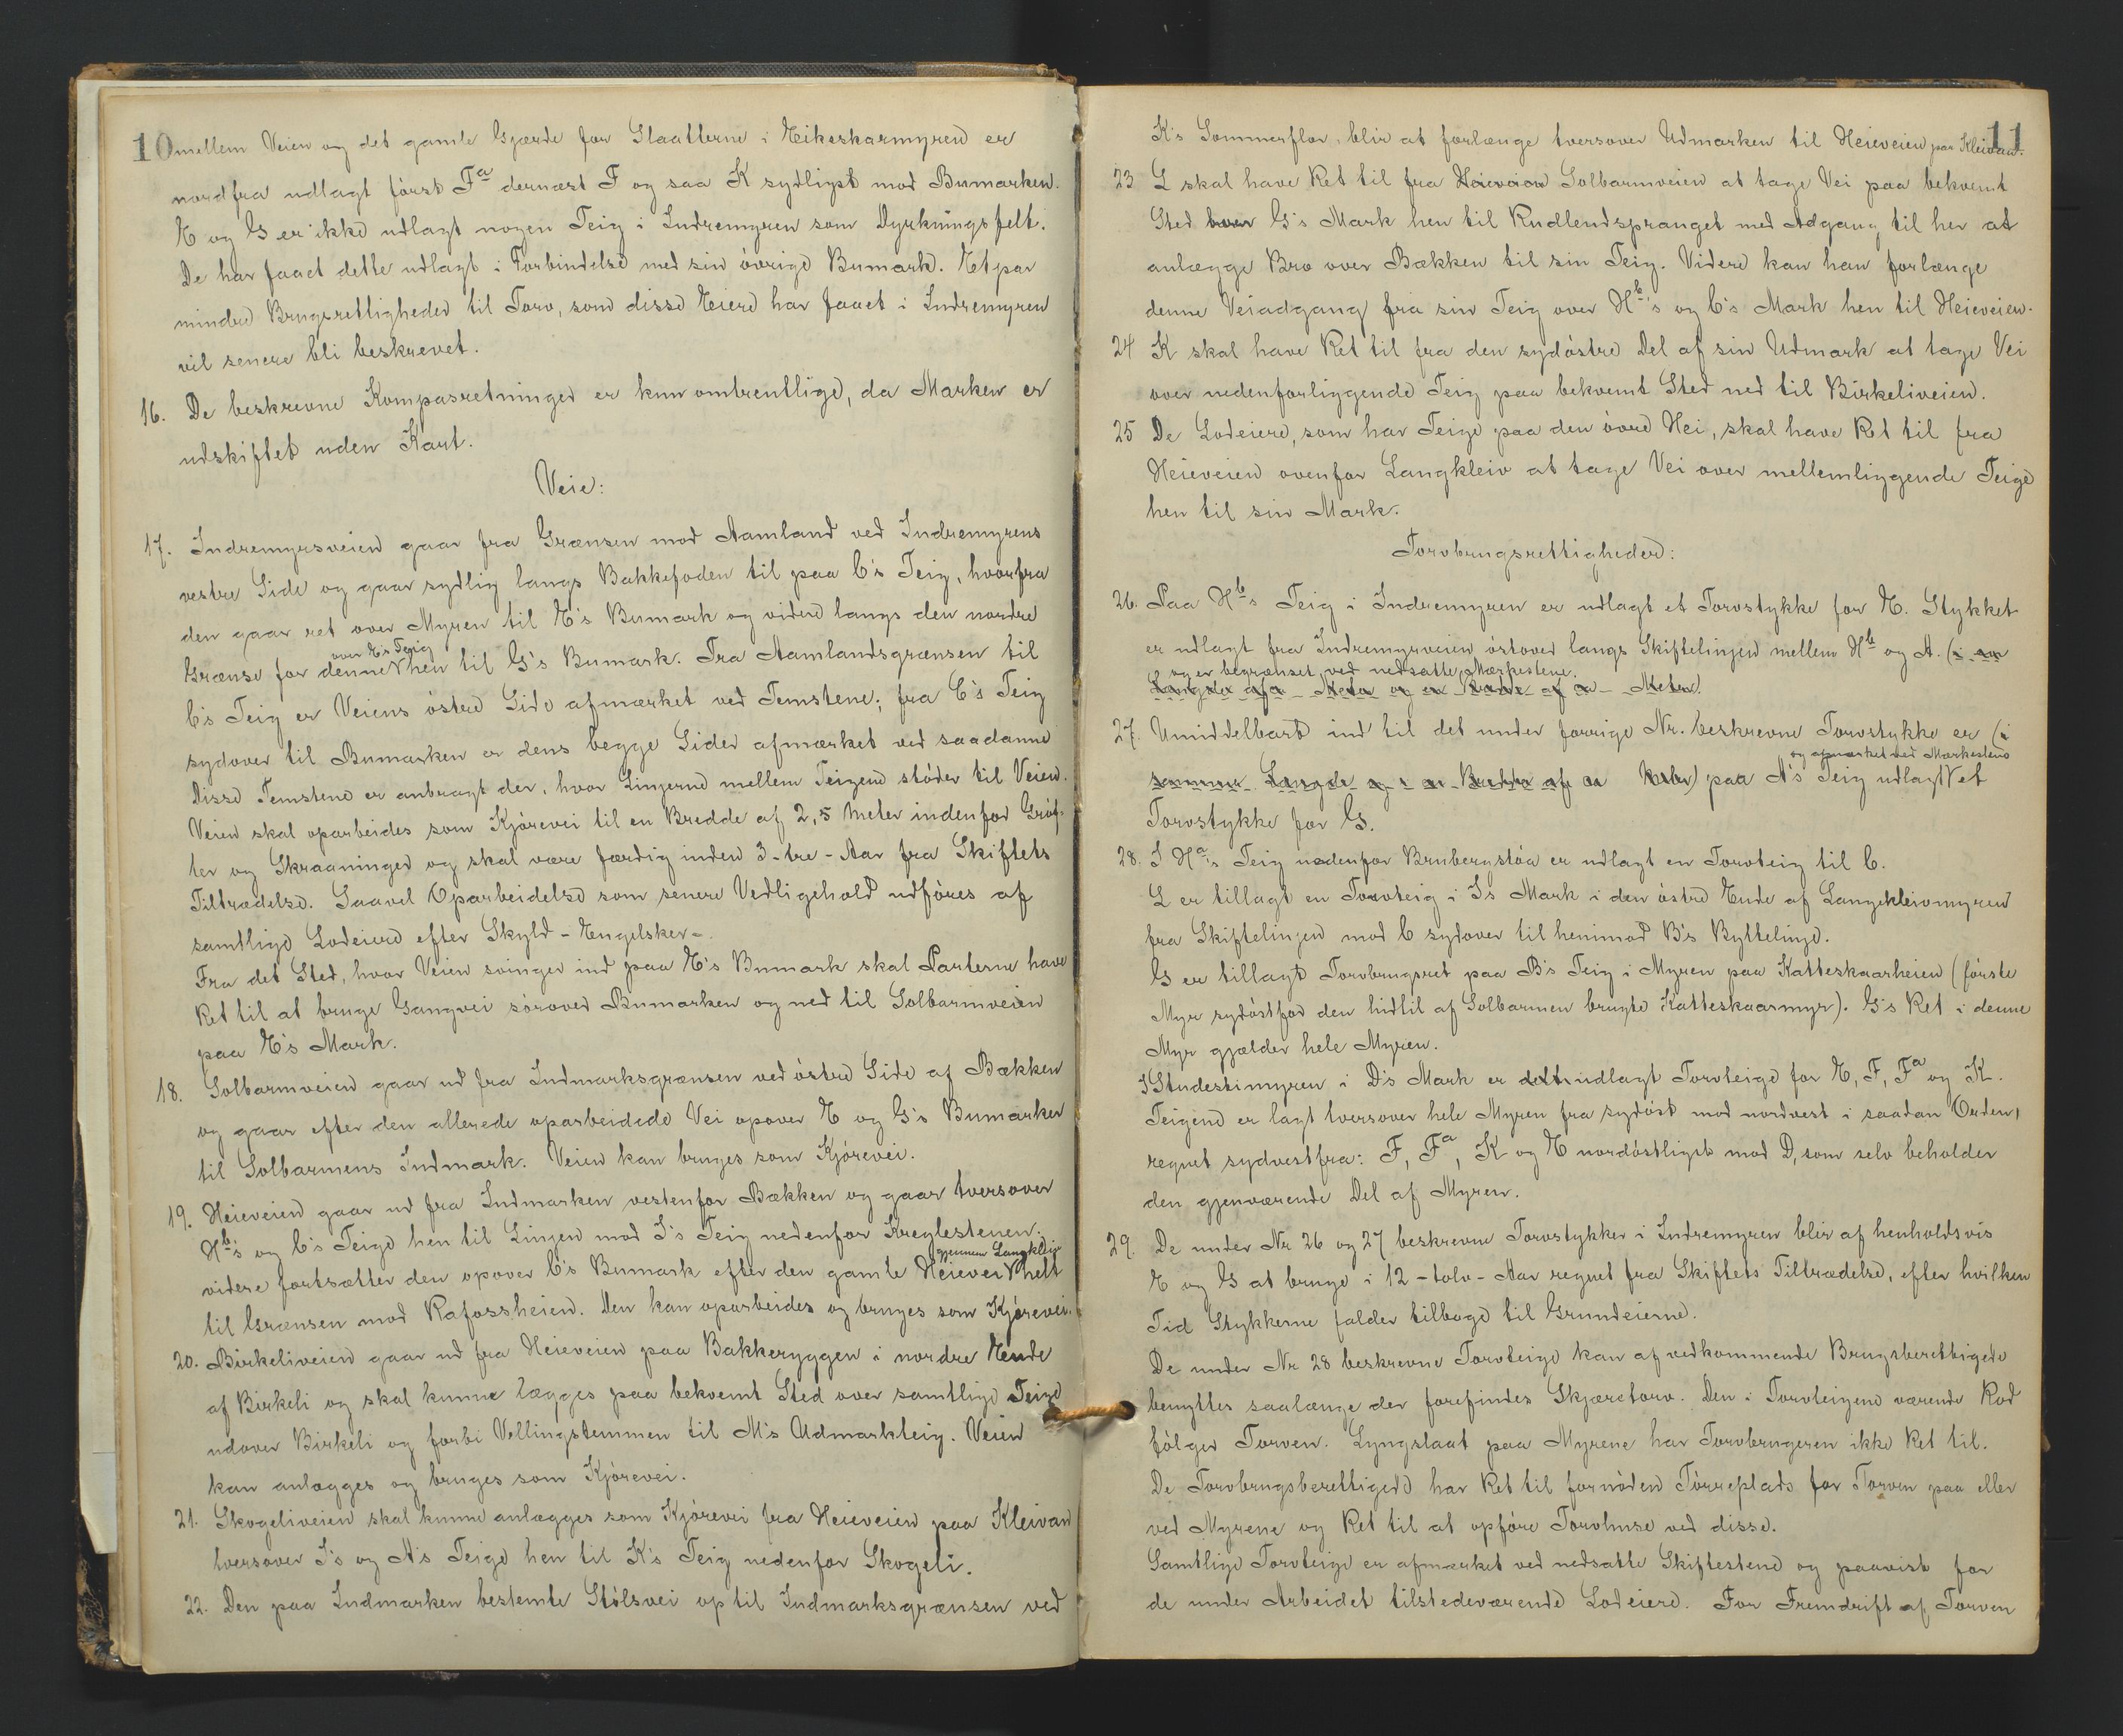 10 mellem Veien og det gamle Gjærde for Slaatterne i Eikeskarmyren er
nordfra udlagt først Fa dernæst F og saa K sydligst mod Bumarken.
E og G er ikke udlagt nogen Teig i Indremyren som Dyrkningsfelt.
De har faaet dette udlagt i Forbindelse med sin øvrige Bumark. Et par
mindre Brugsrettigheder til Torv, som disse Eiere har faaet i Indremyren
vil senere bli beskrevet.
16. De beskrevne Kompasretninger er kun omtrentlige, da Marken er
udskiftet uden Kart.
Veie:
17. Indremyrsveien gaar fra Grænsen mod Aamland ved Indremyrens
vestre Side og gaar sydlig langs Bakkefoden til paa C's Teig, hvorfra
den gaar ret over Myren til E's Bumark og videre langs den nordre
over E's Teig
Grænse for denne hen til G's Bumark. Fra Aamlandsgrænsen til
C's Teig er Veiens østre Side afmærket ved Temstene; fra C's Teig
sydover til Bumarken er dens begge Sider afmærket ved saadanne
Disse Temstene er anbragt der, hvor Linjerne mellem Teigene støder til Veien.
Veien skal oparbeides som Kjørevei til en Bredde af 2,5 Meter indenfor Grøf-
ter og Skraaninger og skal være færdig inden 3-tre-Aar fra Skiftets
Tiltrædelse. Saavel Oparbeidelse som senere Vedligehold udføres af
samtlige Lodeiere efter Skyld-Engelsker-.
Fra det Sted, hvor Veien svinger ind paa E's Bumark skal Parterne have
Ret til at bruge Gangvei sørover Bumarken og ned til Solbarmveien
paa E's Mark.
18. Solbarmveien gaar ud fra Indmarksgrænsen ved østre Side af Bækken
og gaar efter den allerede oparbeidede Vei opover E og G's Bumarker
til Solbarmens Indmark. Veien kan bruges som Kjørevei.
19. Heieveien gaar ud fra Indmarken vestenfor Bækken og gaar tversover
Hb's og C's Teige hen til Linjen mod I's Teig nedenfor Kreglestenen;
gjennem Langkleiv
videre fortsætter den opover C's Bumark efter den gamle Heievei helt
til Grænsen mod Rafossheien. Den kan oparbeides og bruges som Kjørevei.
20. Birkeliveien gaar ud fra Heieveien paa Bakkeryggen i nordre Ende
af Birkeli og skal kunne lægges paa bekvemt Sted over samtlige Teige
udover Birkeli og forbi Vellingstemmen til M's Udmarkteig. Veien
kan anlægges og bruges som Kjørevei.
21. Skogeliveien skal kunne anlægges som Kjørevei fra Heieveien paa Kleivan
tversover I's og A's Teige hen til K's Teig nedenfor Skogeli.
22. Den paa Indmarken bestemte Stølsvei op til Indmarksgrænsen ved
11
K's Sommerflor, blir at forlænge tversover Udmarken til Heieveien paa Kleivan.
23 L skal have Ret til fra Heieveien Solbarmveien at tage Vei paa bekvemt
Sted over G's Mark hen til Rudlendspranget med Adgang til her at
anlægge Bro over Bækken til sin Teig. Videre kan han forlænge
denne Veiadgang fra sin Teig over Hb's og C's Mark hen til Heieveien.
24 K skal have Ret til fra den sydøstre Del af sin Udmark at tage Vei
over nedenforliggende Teig paa bekvemt Sted ned til Birkeliveien.
25 De Lodeiere, som har Teige paa den øvre Hei, skal have Ret til fra
Heieveien ovenfor Langkleiv at tage Vei over mellemliggende Teige
hen til sin Mark.
Torvbrugsrettigheder:
26. Paa Hb's Teig i Indremyren er udlagt et Torvstykke for E. Stykket
er udlagt fra Indremyrveien østover langs Skiftelinjen mellem Hb og A. (i en
og er begrænset ved nedsatte Mærkestene.
Længde af Meter og en Bredde af Meter).
27. Umiddelbart ind til det under forrige Nr. beskrevne Torvstykke er (i
og afmærket ved Mærkestene
samme Længde og i en Bredde af Meter) paa A's Teig udlagt et
Torvstykke for G.
28. I Ha's Teig nedenfor Brubergstøa er udlagt en Torvteig til C.
L er tillagt en Torvteig i I's Mark i den østre Ende af Langekleivmyren
fra Skiftelinjen mod C sydover til henimod B's Byttelinje.
G er tillagt Torvbrugsret paa B's Teig i Myren paa Katteskaarheien (første
Myr sydøstfor den hidtil af Solbarmen brugte Katteskaarmyr). G's Ret i denne
Myr gjælder hele Myren.
I Studestimyren i D's Mark er udlagt Torvteige for E, F, Fa og K.
Teigene er lagt tversover hele Myren fra sydøst mod nordvest i saadan Orden,
regnet sydvestfra: F, Fa, K og E nordøstligst mod D, som selv beholder
den gjenværende Del af Myren.
29. De under Nr 26 og 27 beskrevne Torvstykker i Indremyren blir af henholdsvis
E og G at bruge i 12-tolv-Aar regnet fra Skiftets Tiltrædelse, efter hvilken
Tid Stykkerne falder tilbage til Grundeierne.
De under Nr 28 beskrevne Torvteige kan af vedkommende Brugsberettigede
benyttes saalænge der forefindes Skjæretorv. Den i Torvteigene værende Rod
følger Torven. Lyngslaat paa Myrene har Torvbrugeren ikke Ret til.
De Torvbrugsberettigede har Ret til fornøden Tørreplads for Torven paa eller
ved Myrene og Ret til at opføre Torvhuse ved disse.
Samtlige Torvteige er afmærket ved nedsatte Skiftestene og paavist for
de under Arbeidet tilstedeværende Lodeiere. For Fremdrift af Torven